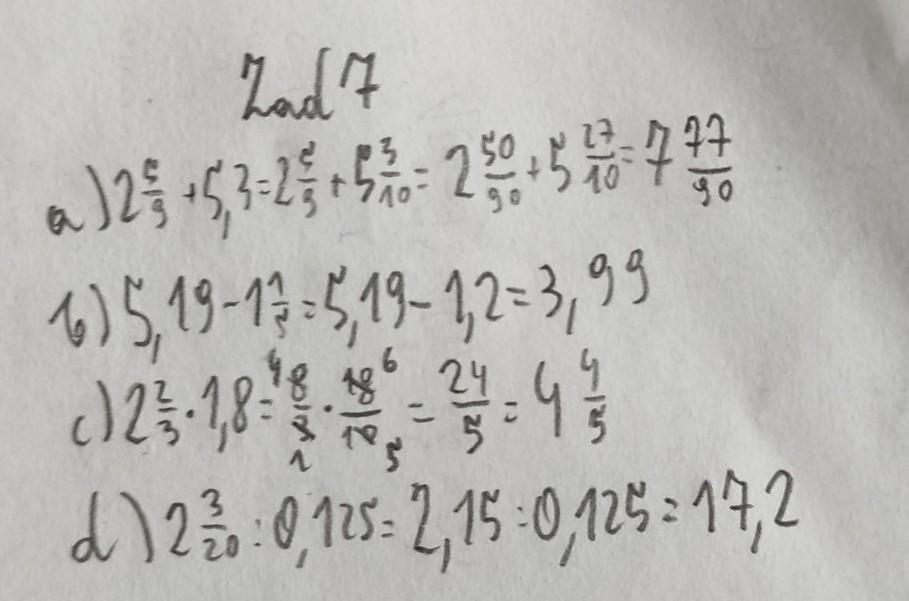 Zad 7
a) 2 5/9 + 5,3 = 2 5/9 + 5 3/10 = 2 50/90 + 5 27/10 = 7 77/90
b) 5,19 - 1 1/5 = 5,19 - 1,2 = 3,99
c) 2 2/3 · 1,8 = 4 8/3 1 · 18 6/10 5 = 24/5 = 4 4/5
d) 2 3/20 : 0,125 = 2,15 : 0,125 = 17,2